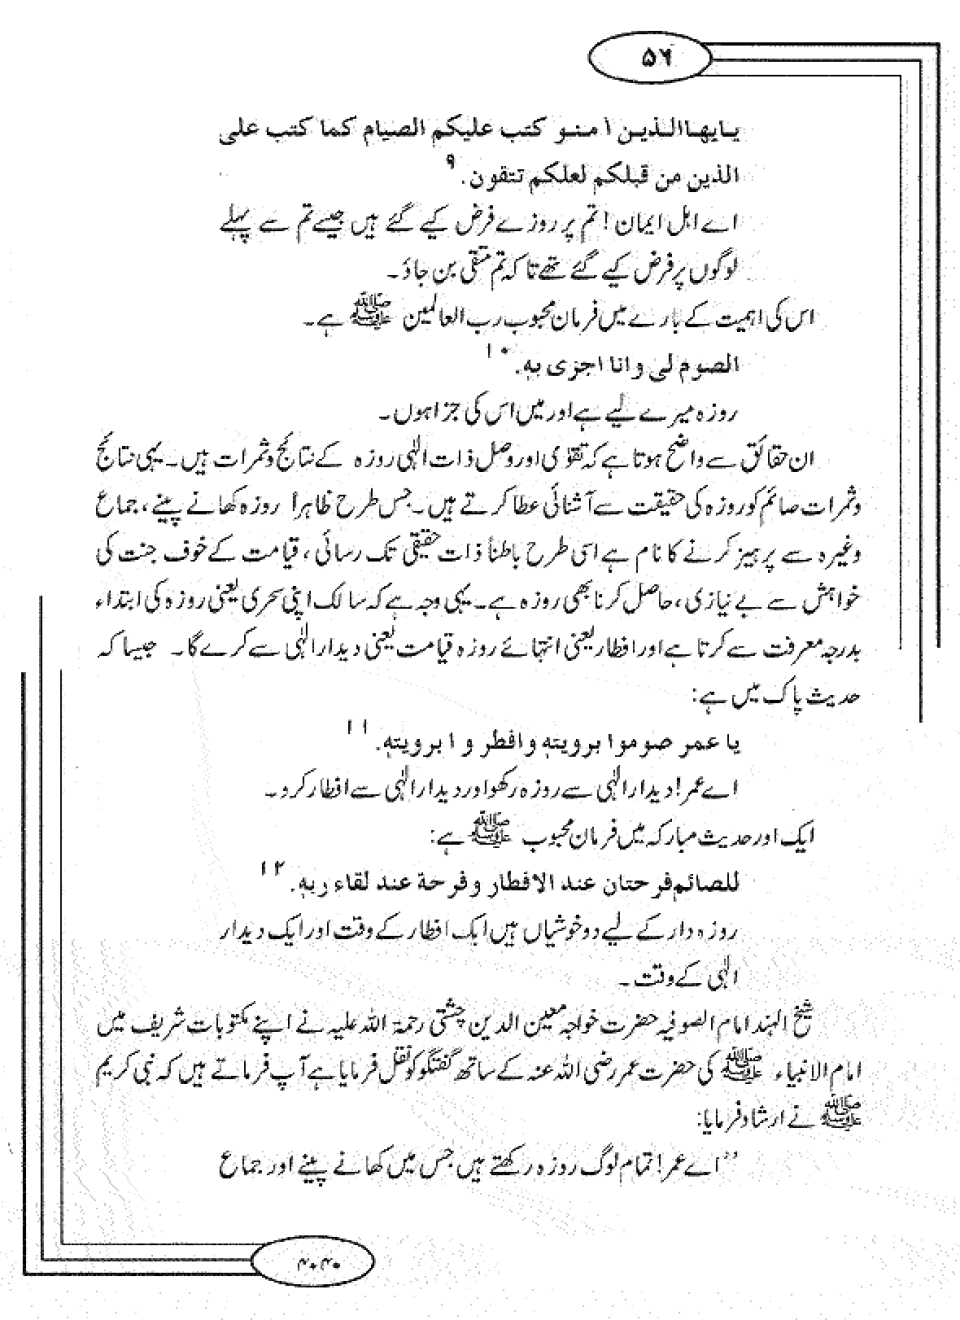 ۵۶
یایھاالذین اٰمنو کتب علیکم الصیام کما کتب علی
الذین من قبلکم لعلکم تتقون۔ ۹
اے اہل ایمان! تم پر روزے فرض کیے گئے ہیں جیسے تم سے پہلے
لوگوں پر فرض کیے گئے تھے تا کہ تم متقی بن جاؤ۔
اس کی اہمیت کے بارے میں فرمان محبوب رب العالمین ﷺ ہے۔
الصوم لی و انا اجزی بہ۔ ۱۰
روزہ میرے لیے ہے اور میں اس کی جزا ہوں۔
ان حقائق سے واضح ہوتا ہے کہ تقوٰی اور وصل ذات الٰہی روزہ کے نتائج و ثمرات ہیں۔ یہی نتائج
و ثمرات صائم کو روزہ کی حقیقت سے آشنائی عطا کرتے ہیں۔ جس طرح ظاہراً روزہ کھانے پینے، جماع
وغیرہ سے پرہیز کرنے کا نام ہے اسی طرح باطناً ذات حقیقی تک رسائی، قیامت کے خوف جنت کی
خواہش سے بے نیازی، حاصل کرنا بھی روزہ ہے۔ یہی وجہ ہے کہ سالک اپنی سحری یعنی روزہ کی ابتداء
بدرجہ معرفت سے کرتا ہے اور افطار یعنی انتہائے روزہ قیامت یعنی دیدار الٰہی سے کرے گا۔ جیسا کہ
حدیث پاک میں ہے:
یا عمر صوموا برویتہ وافطر و ا برویتہ۔ ۱۱
اے عمر! دیدار الٰہی سے روزہ رکھو اور دیدار الٰہی سے افطار کرو۔
ایک اور حدیث مبارکہ میں فرمان محبوب ﷺ ہے:
للصائم فرحتان عند الافطار و فرحة عند لقاء ربہ۔ ۱۲
روزہ دار کے لیے دو خوشیاں ہیں ایک افطار کے وقت اور ایک دیدار
الٰہی کے وقت۔
شیخ الہند امام الصوفیہ حضرت خواجہ معین الدین چشتی رحمۃ اللہ علیہ نے اپنے مکتوبات شریف میں
امام الانبیاء ﷺ کی حضرت عمر رضی اللہ عنہ کے ساتھ گفتگو کو نقل فرمایا ہے آپ فرماتے ہیں کہ نبی کریم
ﷺ نے ارشاد فرمایا:
’’اے عمر! تمام لوگ روزہ رکھتے ہیں جس میں کھانے پینے اور جماع